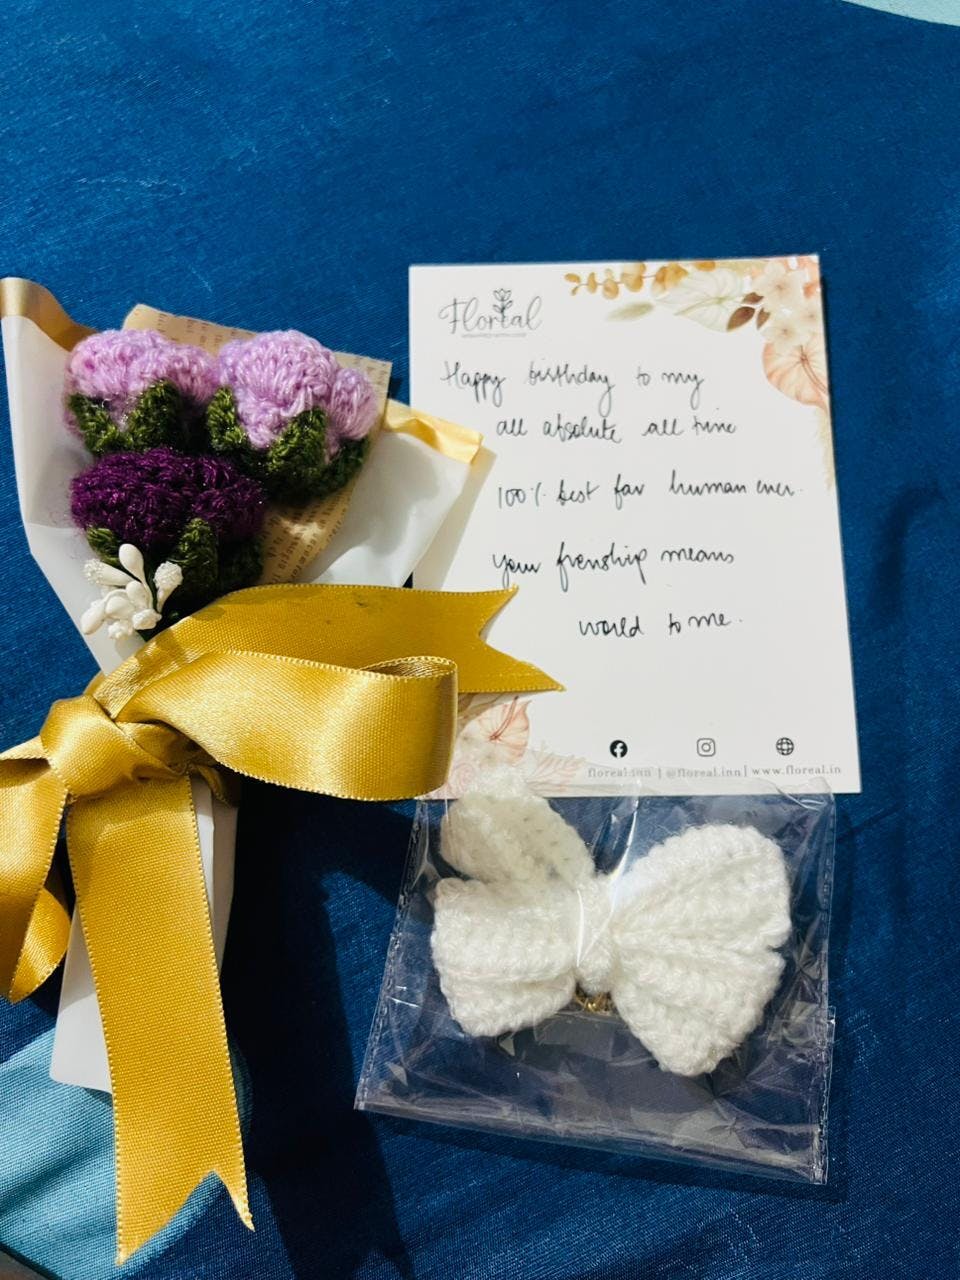 Floreal
Happy birthday to my
all absolute all time
100% best fav human ever.
your frenship means
world to me.
floreal.inn | @floreal.inn | www.floreal.in